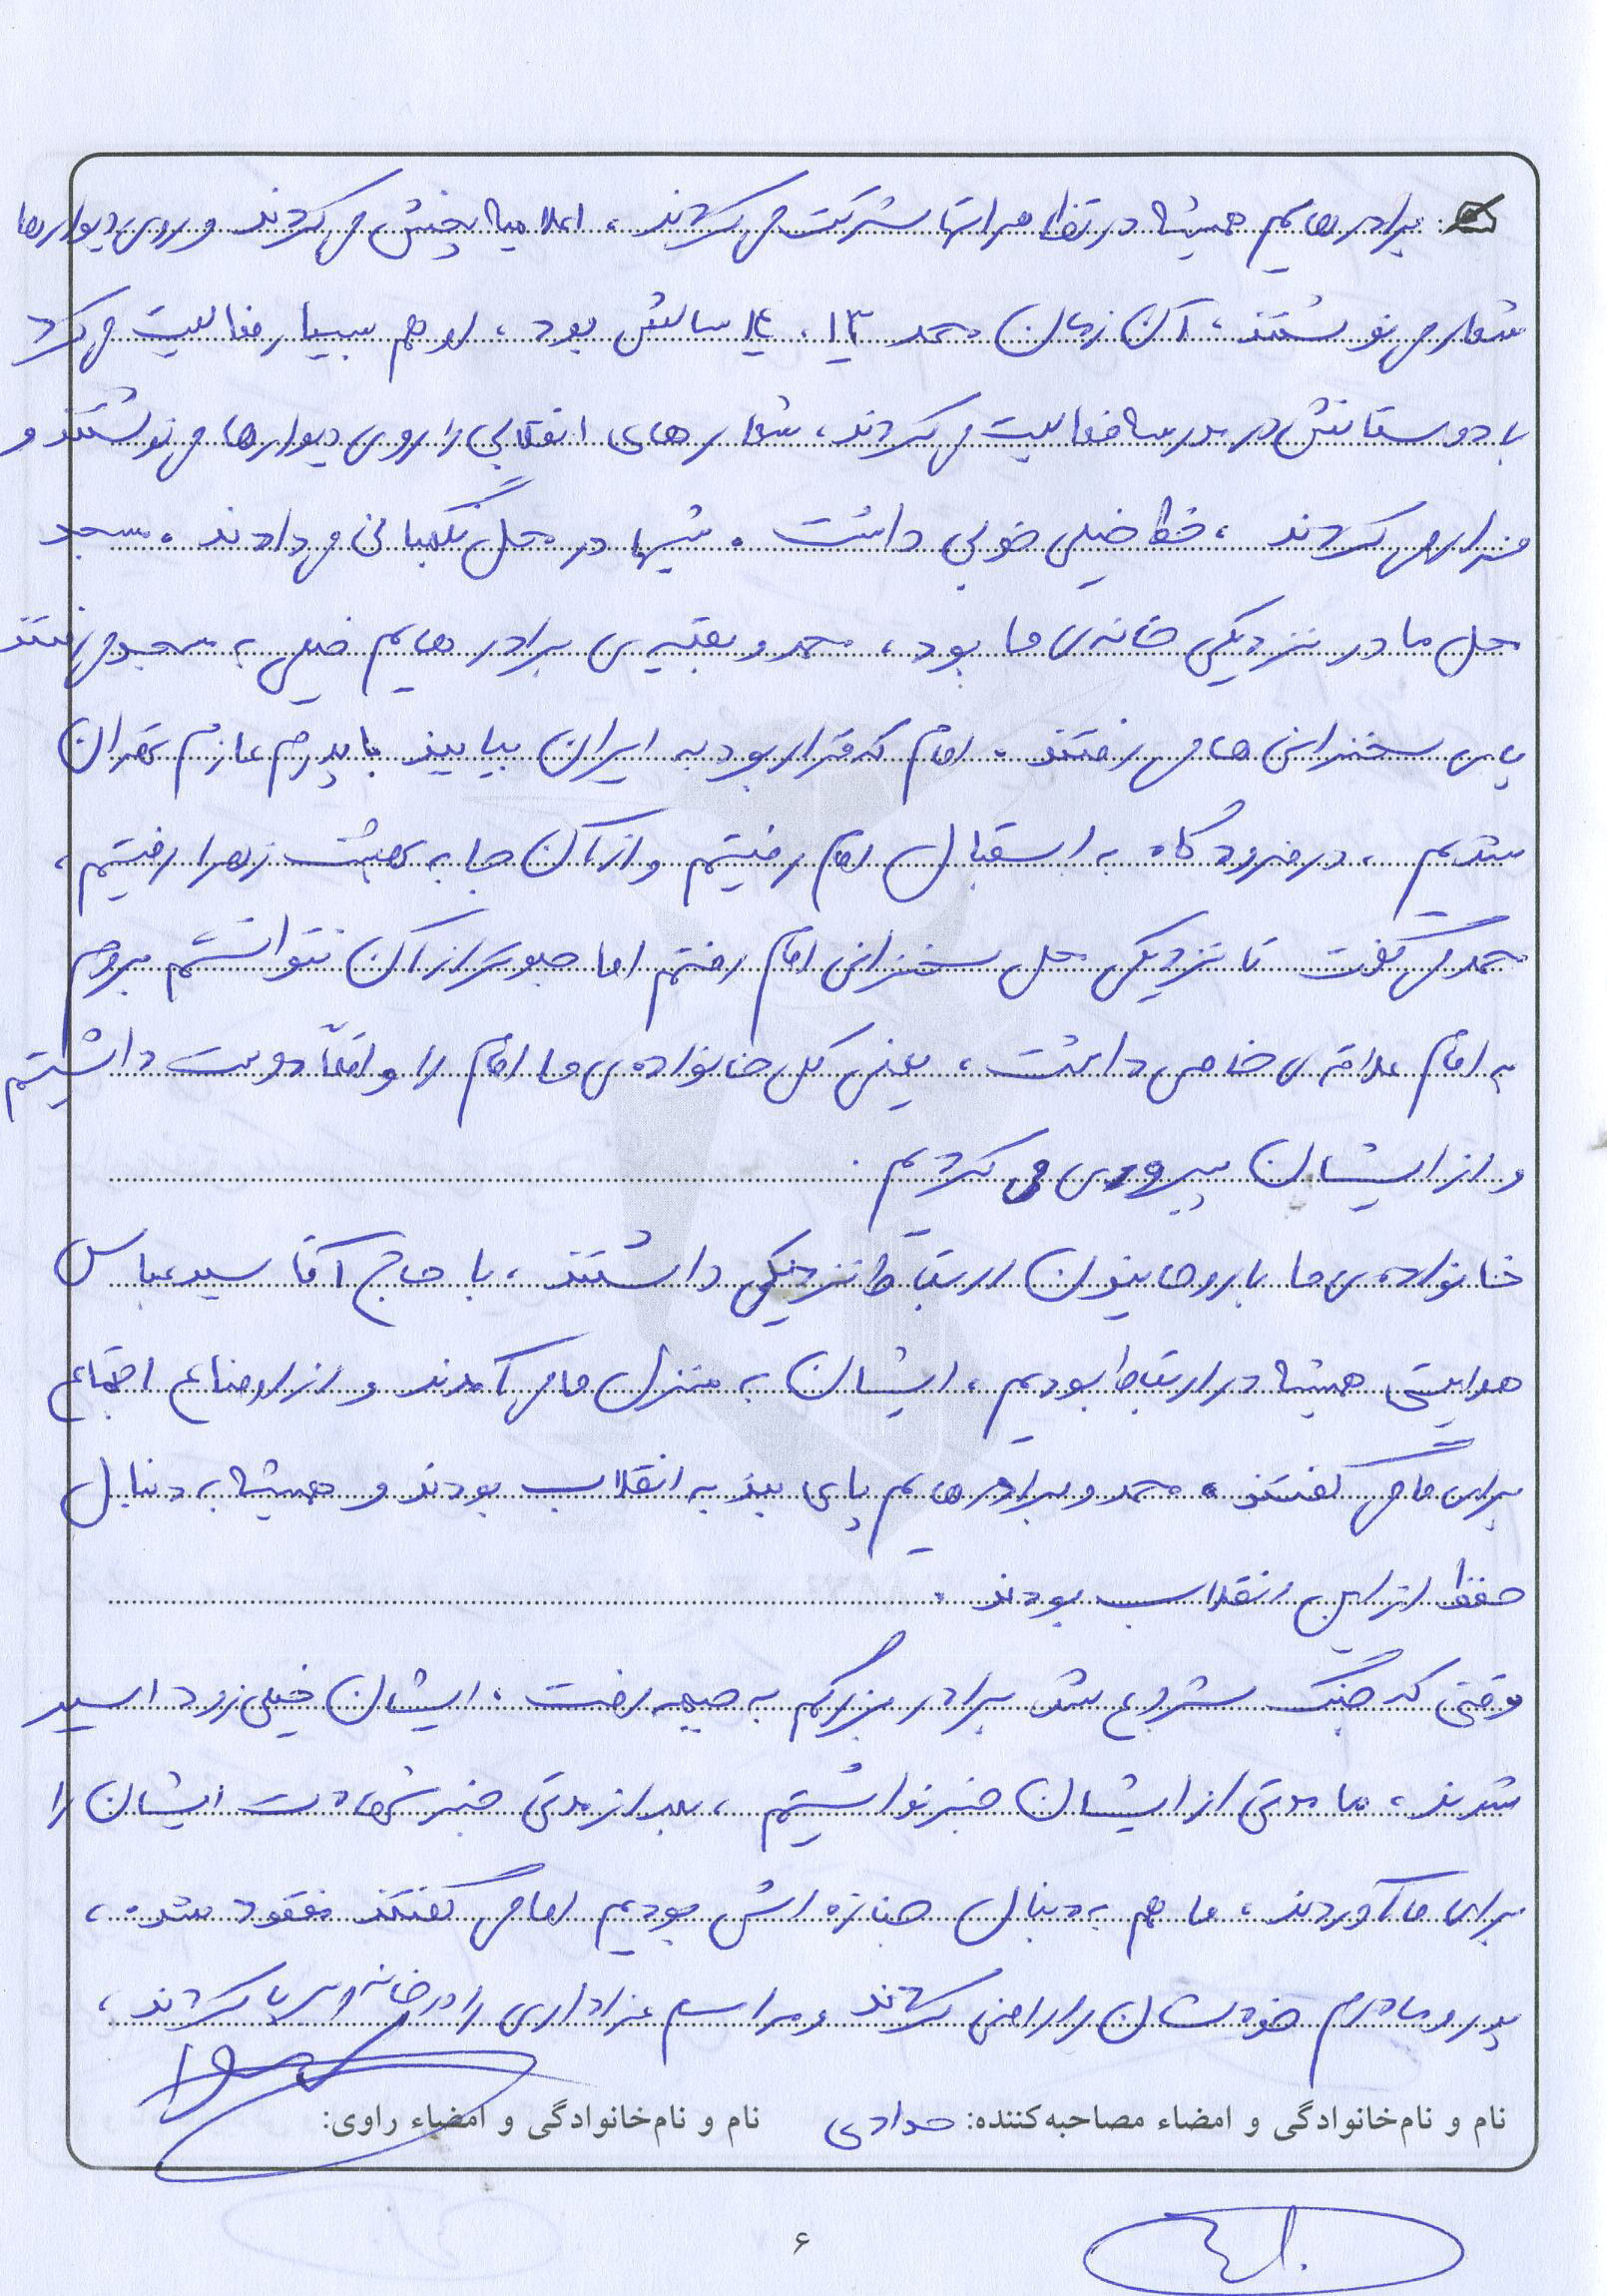 برادرهایم همیشه در تظاهراتها شرکت می کردند، اعلامیه پخش می کردند و روی دیوارها
شعار می نوشتند، آن زمان محمد ۱۳، ۱۴ سالش بود، او هم بسیار فعالیت می کرد
با دوستانش در مدرسه فعالیت می کردند، شعارهای انقلابی را روی دیوارها می نوشتند و
فرار می کردند، خط خیلی خوبی داشت. شبها در محل نگهبانی می دادند. مسجد
محل ما در نزدیکی خانه ی ما بود، محمد و بقیه ی برادرهایم خیلی به مسجد می رفتند
پای سخنرانی ها می رفتند. امام که قرار بود به ایران بیایند با پدرم عازم تهران
شدیم، در فرودگاه به استقبال امام رفتیم و از آن جا به بهشت زهرا رفتیم،
محمد می گفت تا نزدیکی محل سخنرانی امام رفتم اما جلوتر از آن نتوانستم بروم
به امام علاقه ی خاصی داشت، یعنی کل خانواده ی ما امام را واقعاً دوست داشتیم
و از ایشان پیروی می کردیم.
خانواده ی ما با روحانیون ارتباط نزدیکی داشتند، با حاج آقا سید عباس
هدایتی همیشه در ارتباط بودیم، ایشان به منزل ما می آمدند و از اوضاع اجتماع
برای ما می گفتند. محمد و برادرهایم پای بند به انقلاب بودند و همیشه به دنبال
حفظ از این انقلاب بودند.
وقتی که جنگ شروع شد، برادر بزرگم به جبهه رفت، ایشان خیلی زود اسیر
شدند، ما مدتی از ایشان خبر نداشتیم، بعد از مدتی خبر شهادت ایشان را
برای ما آوردند، ما هم به دنبال جنازه اش بودیم اما می گفتند مفقود شده،
پدر و مادرم خودشان را راضی کردند و مراسم عزاداری را در خانه برپا کردند،
نام و نام‌خانوادگی و امضاء مصاحبه‌کننده: حدادی نام و نام‌خانوادگی و امضاء راوی:
۶